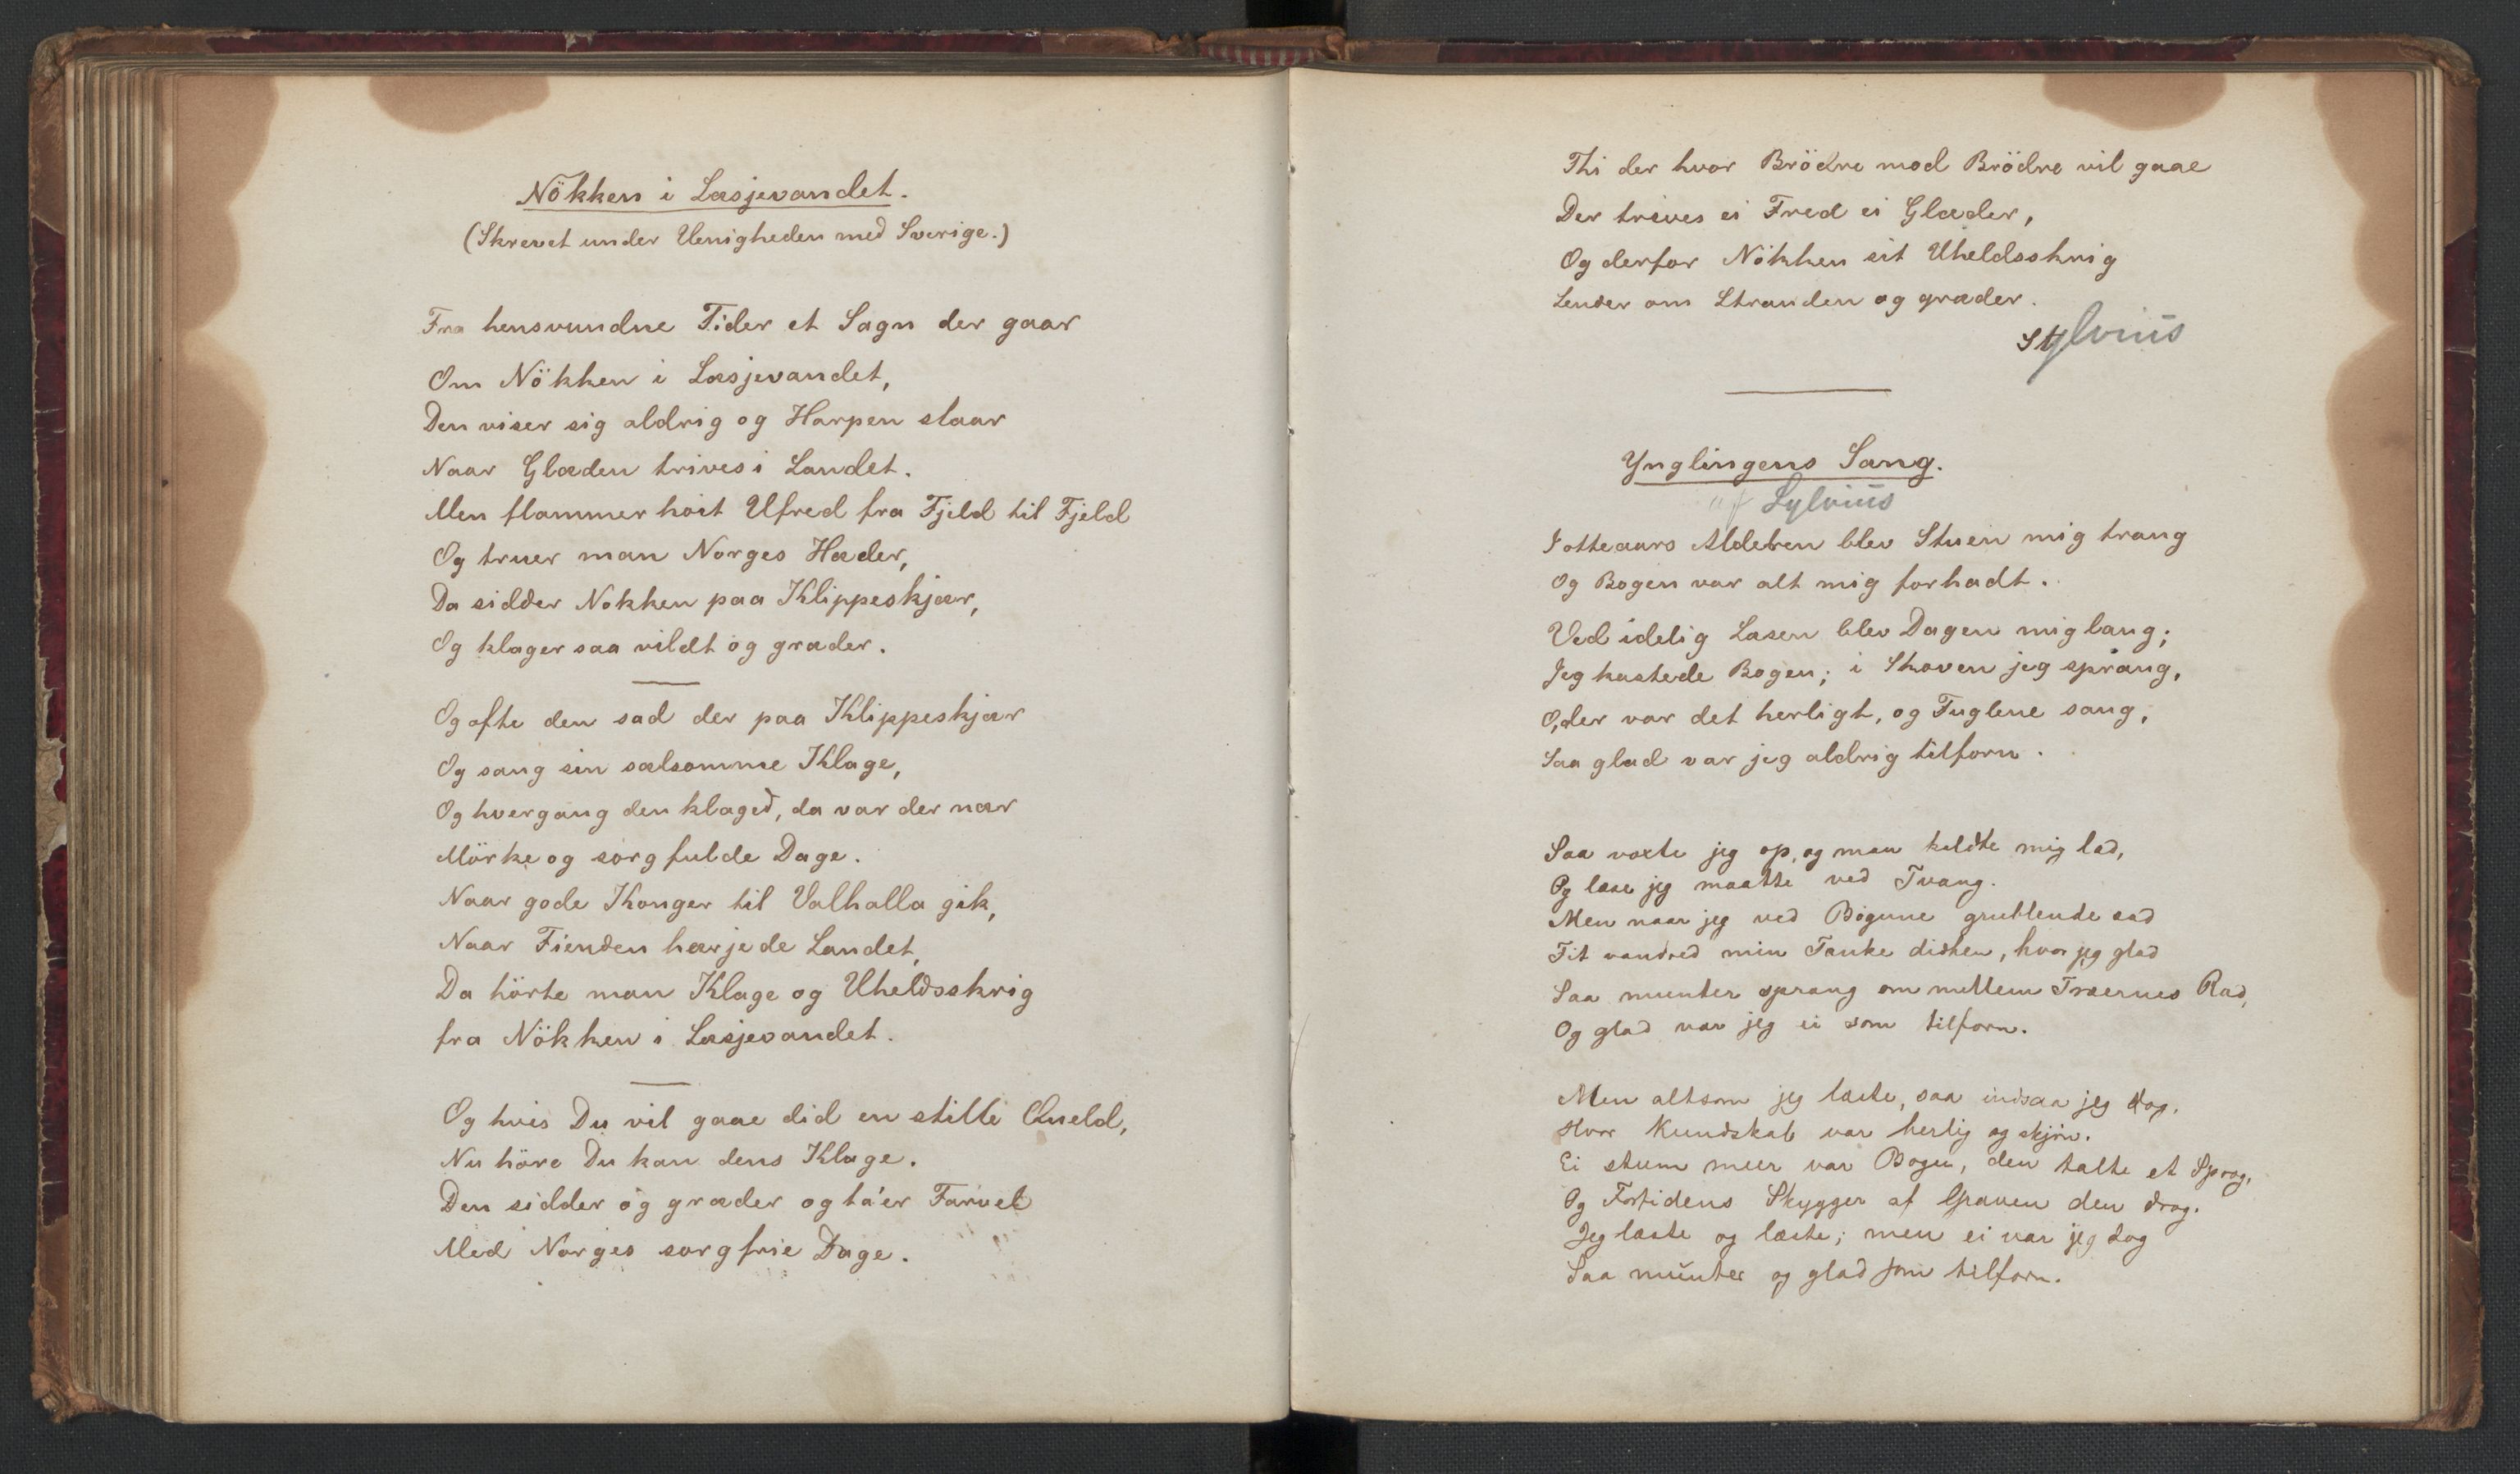 Nökken i Læsjevandet.
(Skrevet under Uenigheden med Sverige.)
Fra hensvundne Tider et Sagn der gaar
Om Nökken i Læsjevandet,
Den viser sig aldrig og Harpen slaar
Naar Glæden trives i Landet.
Men flammer höit Ufred fra Fjeld til Fjeld
Og truer man Norges Hæder,
Da sidder Nökken paa Klippeskjær,
Og klager saa vildt og græder.
Og ofte den sad der paa Klippeskjær
Og sang sin sælsomme Klage,
Og hvergang den klaged, da var der nær
Mörke og sorgfulde Dage.
Naar gode Konger til Valhalla gik,
Naar Fienden hærjede Landet,
Da hörte man Klage og Uheldsskrig
fra Nökken i Læsjevandet.
Og hvis Du vil gaae did en stille Qveld,
Nu höre Du kan dens Klage.
Den sidder og græder og ta'er Farvel
Med Norges sorgfrie Dage.
Thi der hvor Brödre mod Brödre vil gaae
Der trives ei Fred ei Glæder,
Og derfor Nökken sit Uheldsskrig
Sender om Stranden og græder.
Sylvius
Ynglingens Sang.
af Sylvius
I otteaars Alderen blev Stuen mig trang
Og Bogen var alt mig forhadt.
Ved idelig Læsen blev Dagen mig lang;
Jeg kastede Bogen; i Skoven jeg sprang,
O, der var det herligt, og Fuglene sang,
Saa glad var jeg aldrig tilforn.
Saa voxte jeg op, og man kaldte mig lad,
Og læse jeg maatte ved Tvang.
Men naar jeg ved Bögerne grublende sad
Tit vandred min Tanke didhen, hvor jeg glad
Saa munter sprang om mellem Træernes Rad,
Og glad var jeg ei som tilforn.
Men altsom jeg læste, saa indsaa jeg dog,
Hvor Kundskab var herlig og skjön.
Ei stum meer var Bogen, den talte et Sprog,
Og Fortidens Skygger af Graven den drog.
Jeg læste og læste; men ei var jeg dog
Saa munter og glad som tilforn.